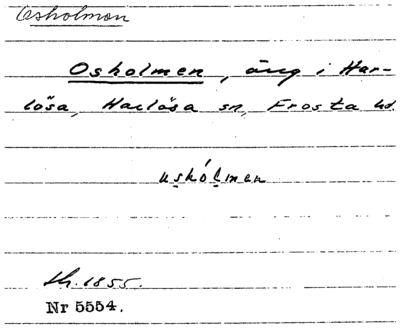 Osholmen
Osholmen, äng i Har-
lösa, Harlösa sn, Frosta hd.
uskólmen
sk. 1855.
Nr 5554.